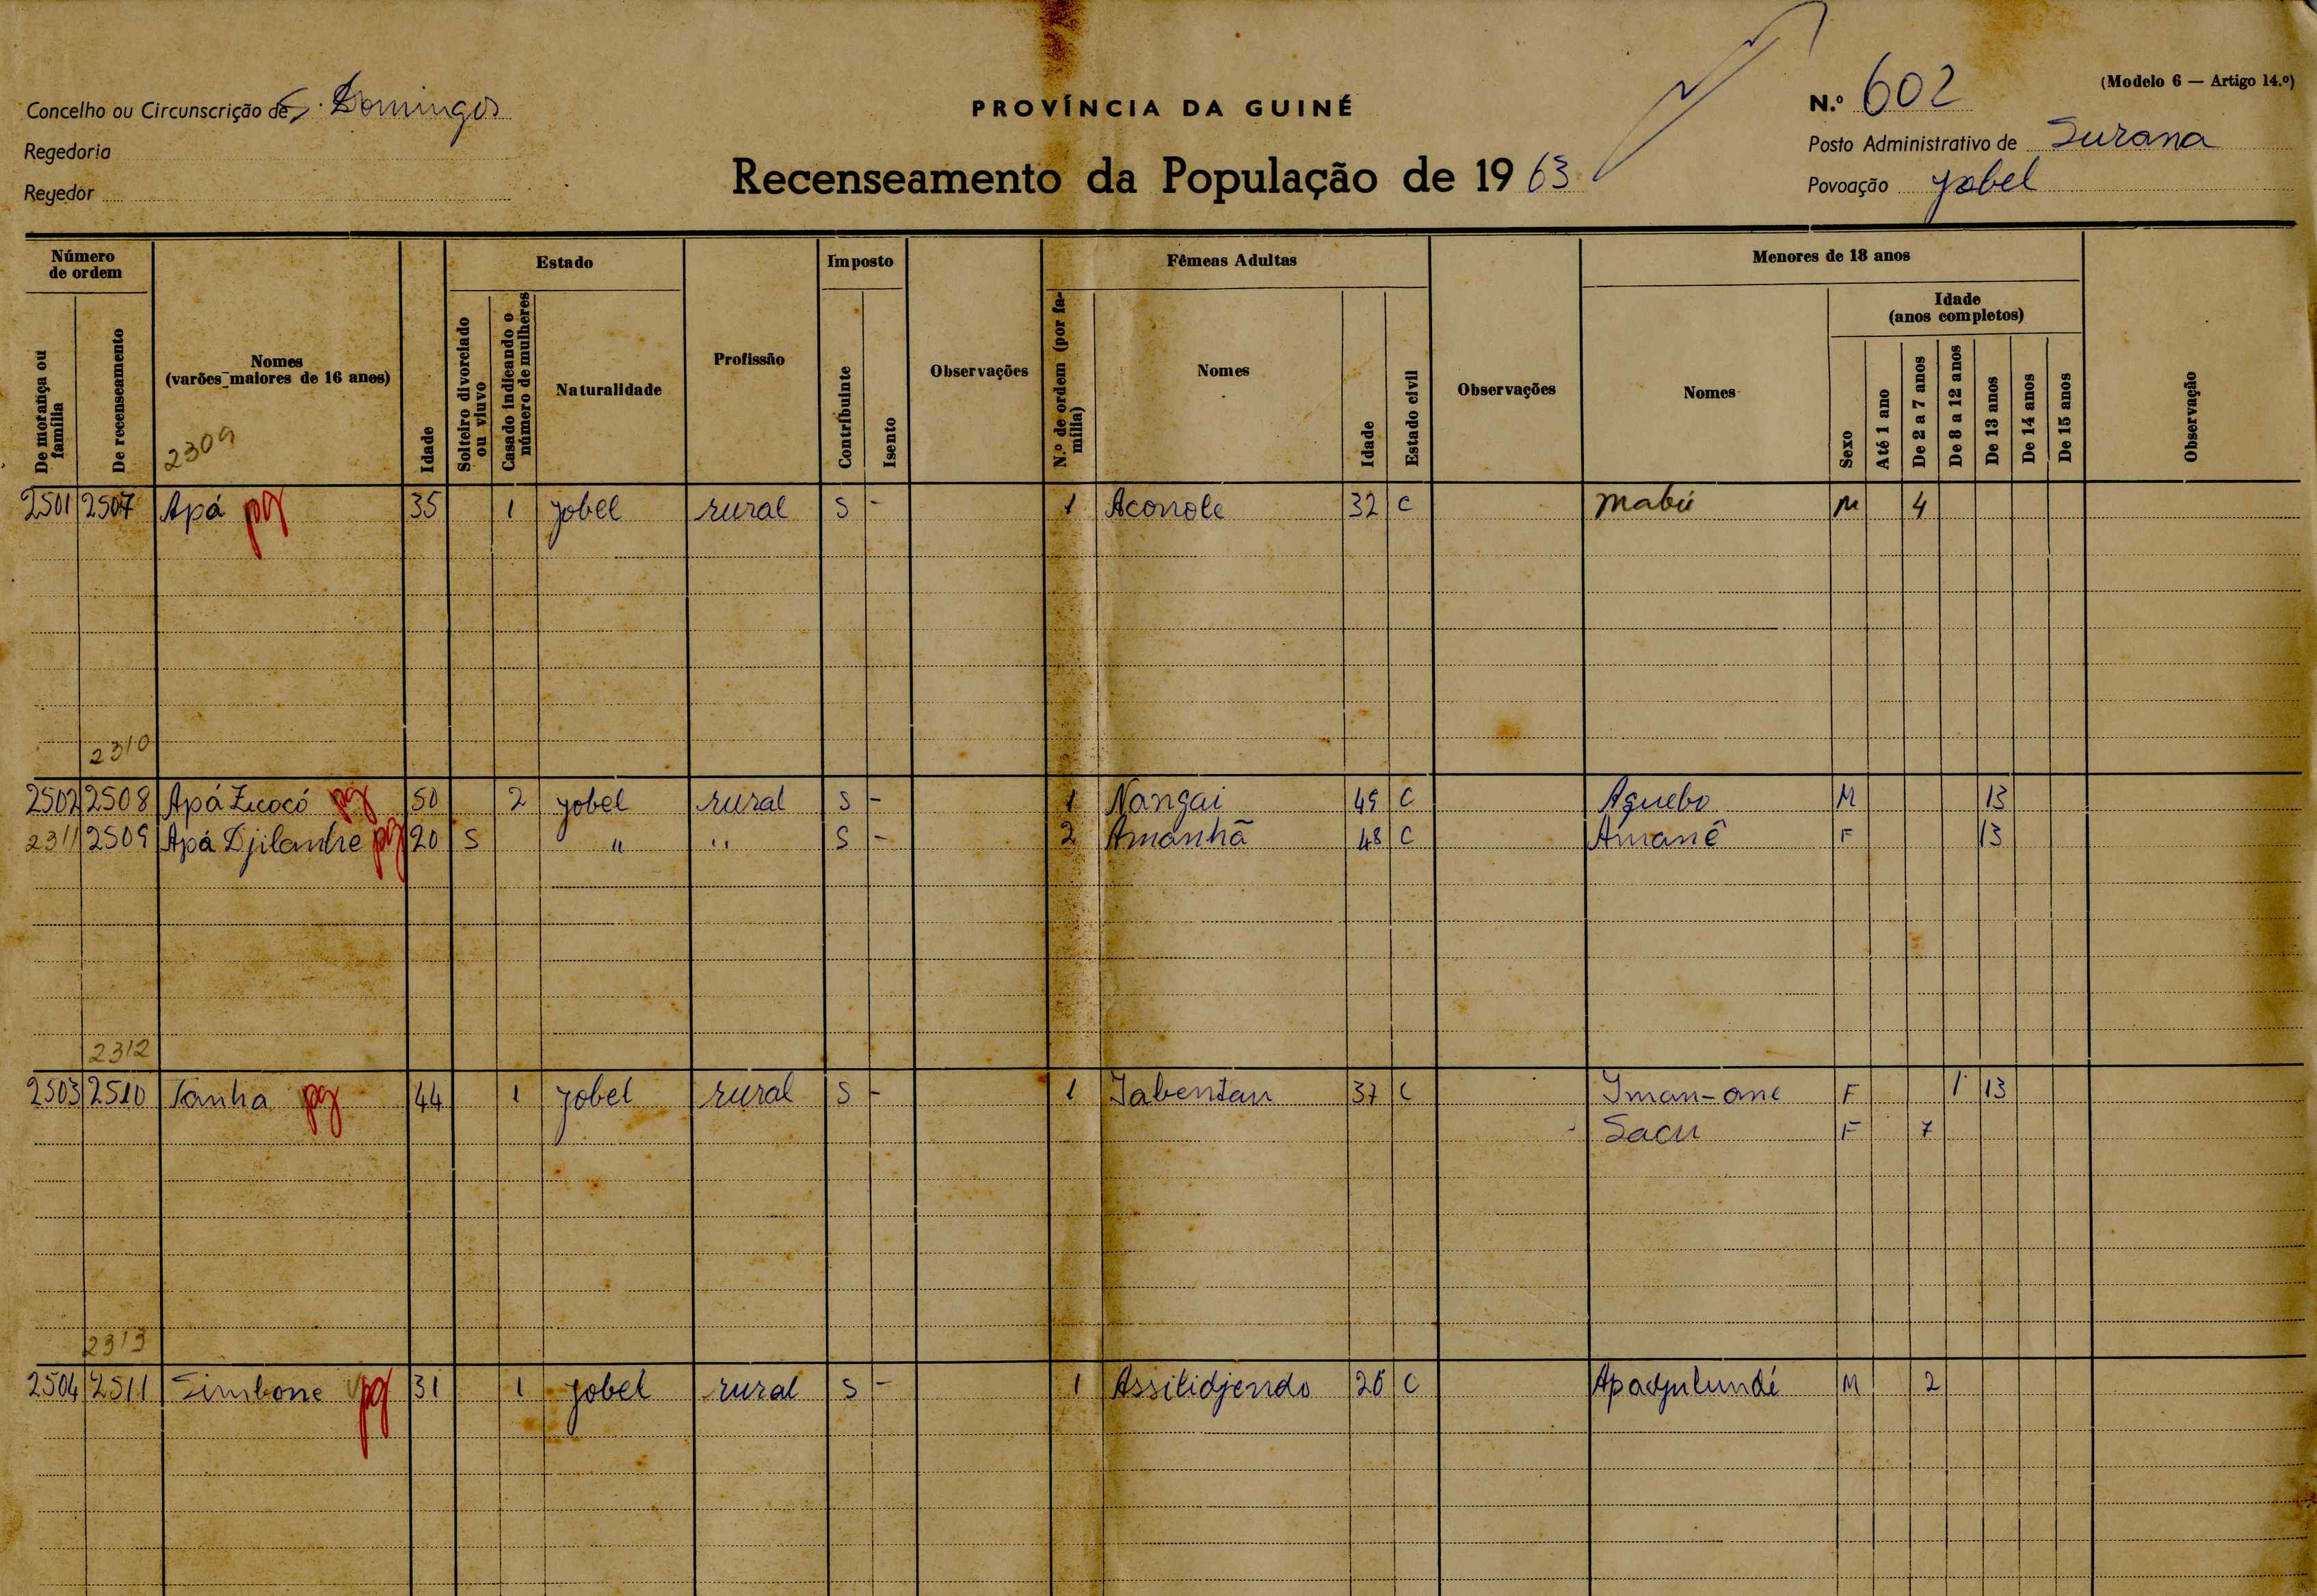 Concelho ou Circunscrição de S. Domingos
PROVÍNCIA DA GUINÉ
N.º 602
(Modelo 6 — Artigo 14.º)
Regedoria
Posto Administrativo de Surana
Regedor
Recenseamento da População de 1963
Povoação Jobel
Número de ordem
De morança ou família
De recenseamento
Nomes (varões maiores de 16 anos)
2309
Idade
Estado
Solteiro divorciado ou viuvo
Casado indicando o número de mulheres
Naturalidade
Profissão
Imposto
Contribuinte
Isento
Observações
Fêmeas Adultas
N.º de ordem (por família)
Nomes
Idade
Estado civil
Observações
Menores de 18 anos
Nomes
Sexo
Idade (anos completos)
Até 1 ano
De 2 a 7 anos
De 8 a 12 anos
De 13 anos
De 14 anos
De 15 anos
Observação
2501 2507 Apá pg 35 1 Jobel rural S - 1 Aconole 32 C Mabú M 4
2310
2502 2508 Apá Zucocó pg 50 2 Jobel rural S - 1 Nangai 49 C Aguebo M 13
2311 2509 Apá Djilanhe pg 20 S " " S - 2 Amanhã 48 C Amanê F 13
2312
2503 2510 Tanha pg 44 1 Jobel rural S - 1 Jabentan 37 C Iman-ane F 1 13
Sacu F 7
2313
2504 2511 Simbone pg 31 1 Jobel rural S - 1 Assilidjendo 26 C Apadjulundé M 2